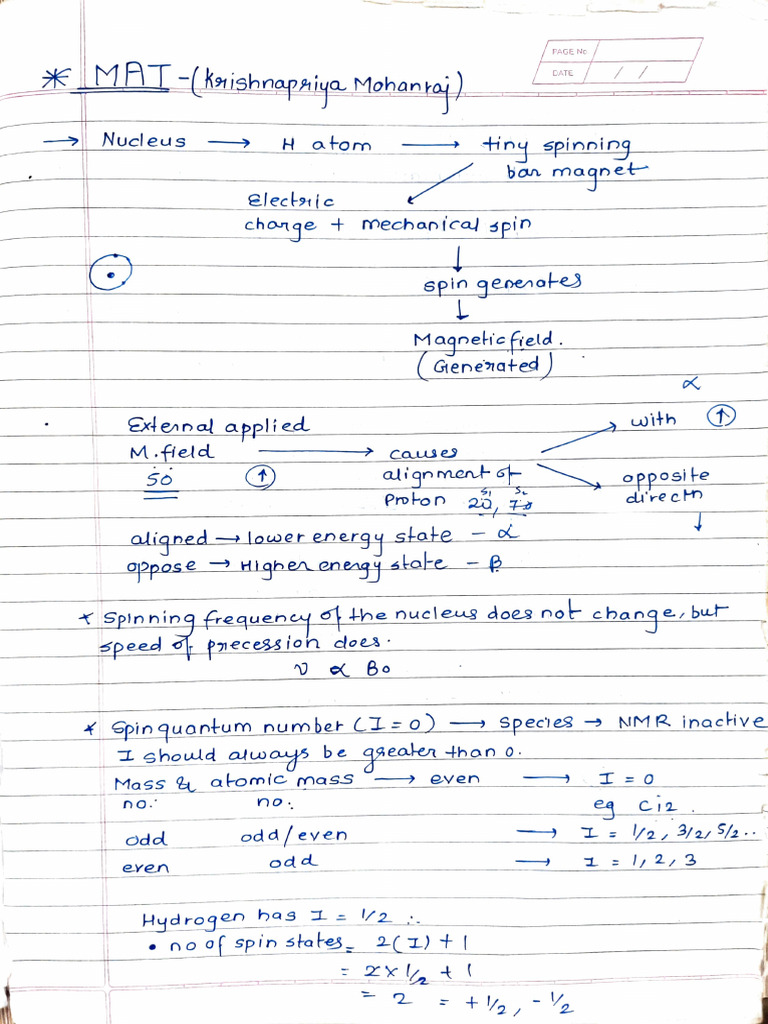 PAGE No
DATE / /
* MAT - (Krishnapriya Mohanraj)
→ Nucleus → H atom → tiny spinning
bar magnet
Electric
charge + mechanical spin
↓
spin generates
↓
Magnetic field.
(Generated)
α
External applied
with ↑
M.field → causes
50 ↑ alignment of opposite
Proton 20, 70 directn
S1 S2
↓
aligned → lower energy state - α
oppose → Higher energy state - β
* Spinning frequency of the nucleus does not change, but
speed of precession does.
ν α Bo
* Spin quantum number (I = 0) → species → NMR inactive
I should always be greater than 0.
Mass & atomic mass → even → I = 0
no. no. eg C12.
odd odd/even → I = 1/2, 3/2, 5/2..
even odd → I = 1, 2, 3
Hydrogen has I = 1/2 ∴
• no of spin states = 2(I) + 1
= 2 x 1/2 + 1
= 2 = + 1/2, - 1/2